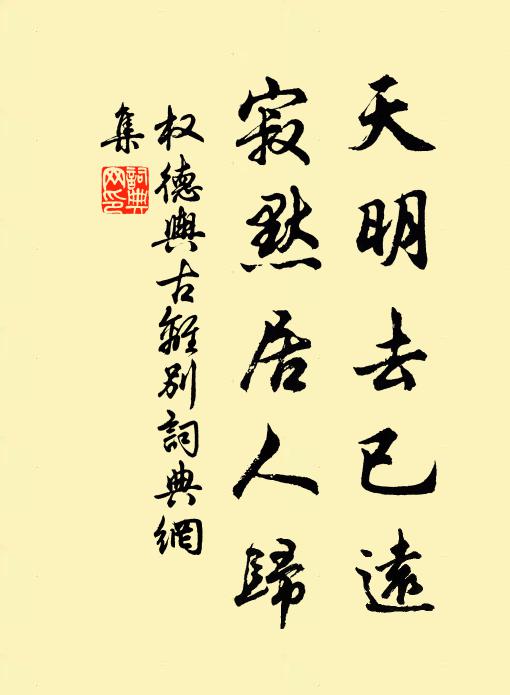 天明去已遠
寂默居人歸
权德輿古離別詞典網
集
詞典
网印